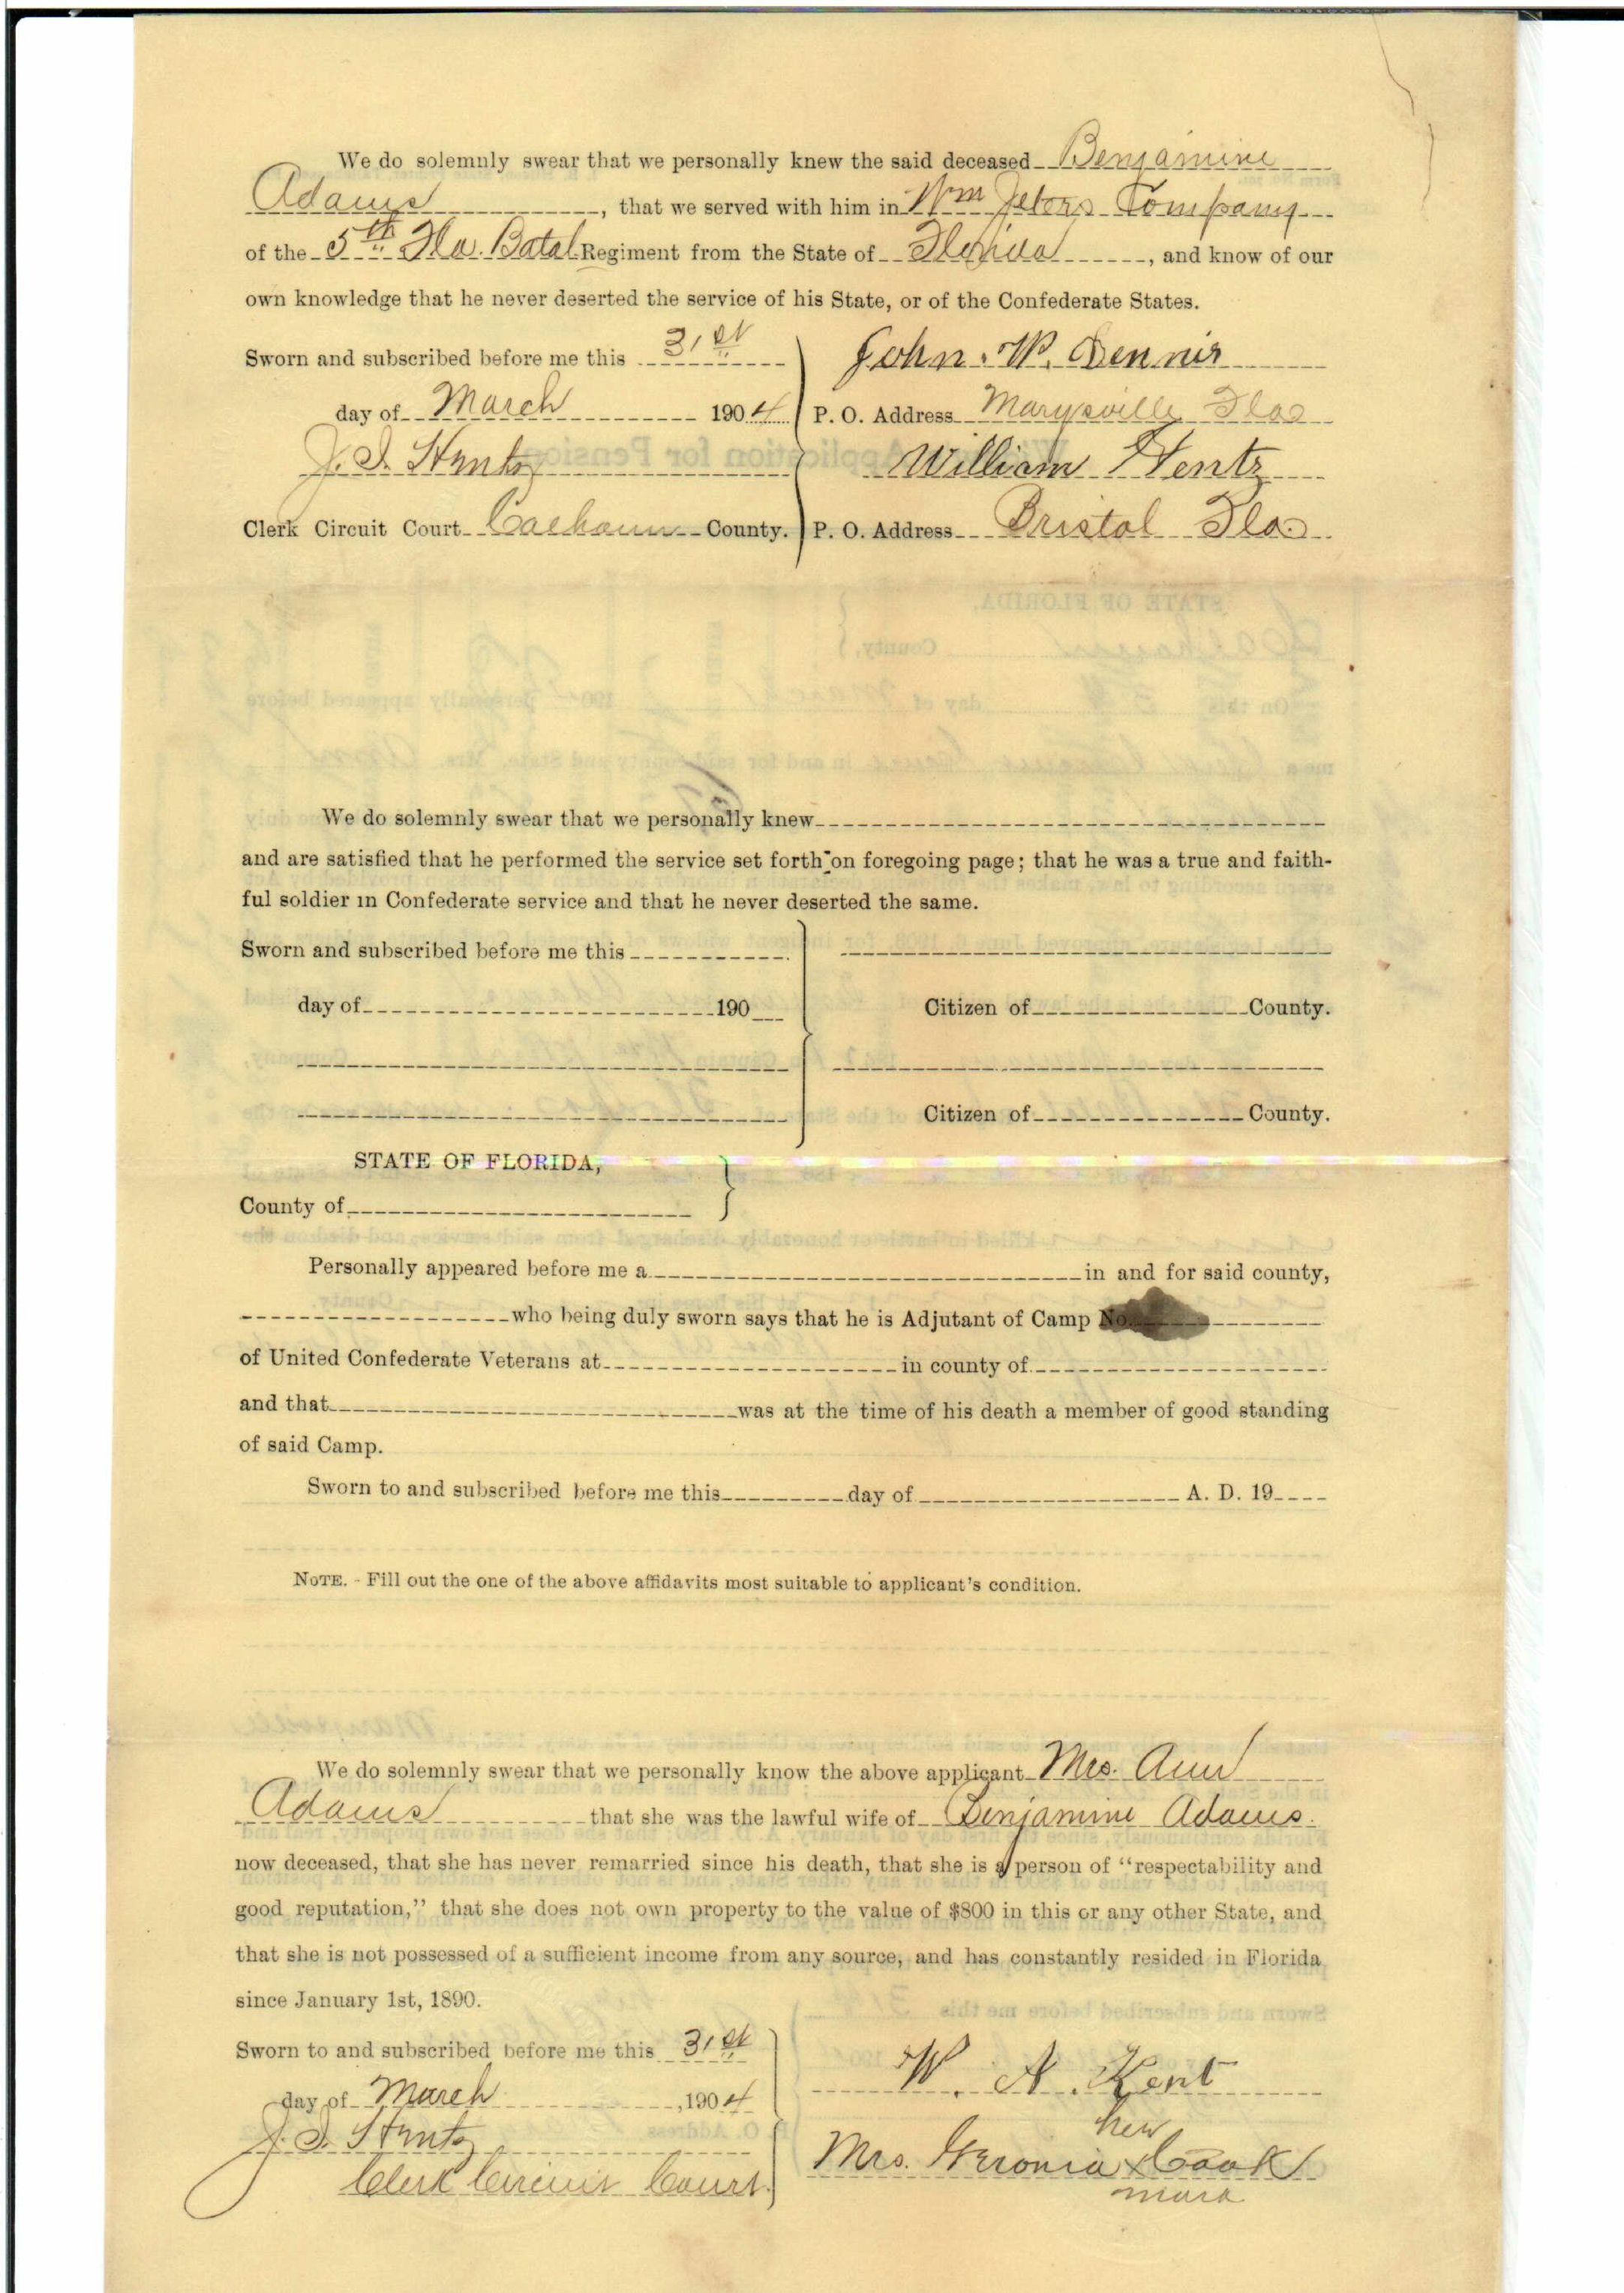 We do solemnly swear that we personally knew the said deceased Benjamine
Adams, that we served with him in Wm Jeters Company
of the 5th Fla. Batal Regiment from the State of Florida, and know of our
own knowledge that he never deserted the service of his State, or of the Confederate States.
Sworn and subscribed before me this 31st John. W. Dennis
day of March 1904 P. O. Address Marysville Fla
William Hentz
Clerk Circuit Court Calhoun County. P. O. Address Bristol Fla.
We do solemnly swear that we personally knew
and are satisfied that he performed the service set forth on foregoing page; that he was a true and faith-
ful soldier in Confederate service and that he never deserted the same.
Sworn and subscribed before me this
day of 190 Citizen of County.
Citizen of County.
STATE OF FLORIDA,
County of
Personally appeared before me a in and for said county,
who being duly sworn says that he is Adjutant of Camp No.
of United Confederate Veterans at in county of
and that was at the time of his death a member of good standing
of said Camp.
Sworn to and subscribed before me this day of A. D. 19
NOTE. - Fill out the one of the above affidavits most suitable to applicant's condition.
We do solemnly swear that we personally know the above applicant Mrs. Ann
Adams that she was the lawful wife of Benjamine Adams.
now deceased, that she has never remarried since his death, that she is a person of "respectability and
good reputation," that she does not own property to the value of $800 in this or any other State, and
that she is not possessed of a sufficient income from any source, and has constantly resided in Florida
since January 1st, 1890.
Sworn to and subscribed before me this 31st
day of March, 1904 W. A. Kent
her
Mrs. x Cook
mark
Clerk Circuit Court